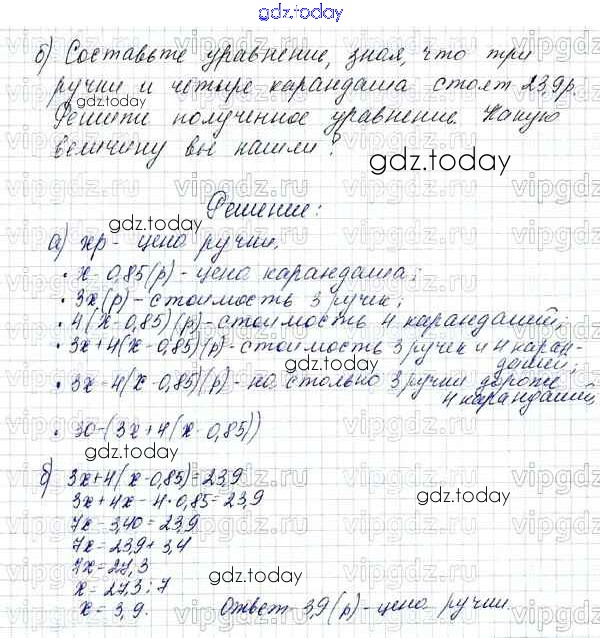 gdz.today
б) Составьте уравнение, зная, что три
ручки и четыре карандаша стоят 23,9р.
gdz.today
Решите полученное уравнение. Какую
величину вы нашли?
gdz.today
Решение:
gdz.today
а) xр - цена ручки.
• x-0,85(р) - цена карандаша;
• 3x(р) - стоимость 3 ручек;
• 4(x-0,85)(р) - стоимость 4 карандашей;
• 3x+4(x-0,85)(р) - стоимость 3 ручек и 4 каран-
дашей;
• 3x-4(x-0,85)(р) - на столько 3 ручки дороже
4 карандашей
gdz.today
• 30-(3x+4(x-0,85))
gdz.today
б) 3x+4(x-0,85)=23,9
3x+4x-4•0,85=23,9
gdz.today
7x-3,40=23,9
7x=23,9+3,4
7x=27,3
gdz.today
x=27,3:7
x=3,9. Ответ 3,9(р) - цена ручки.
vipgdz.ru